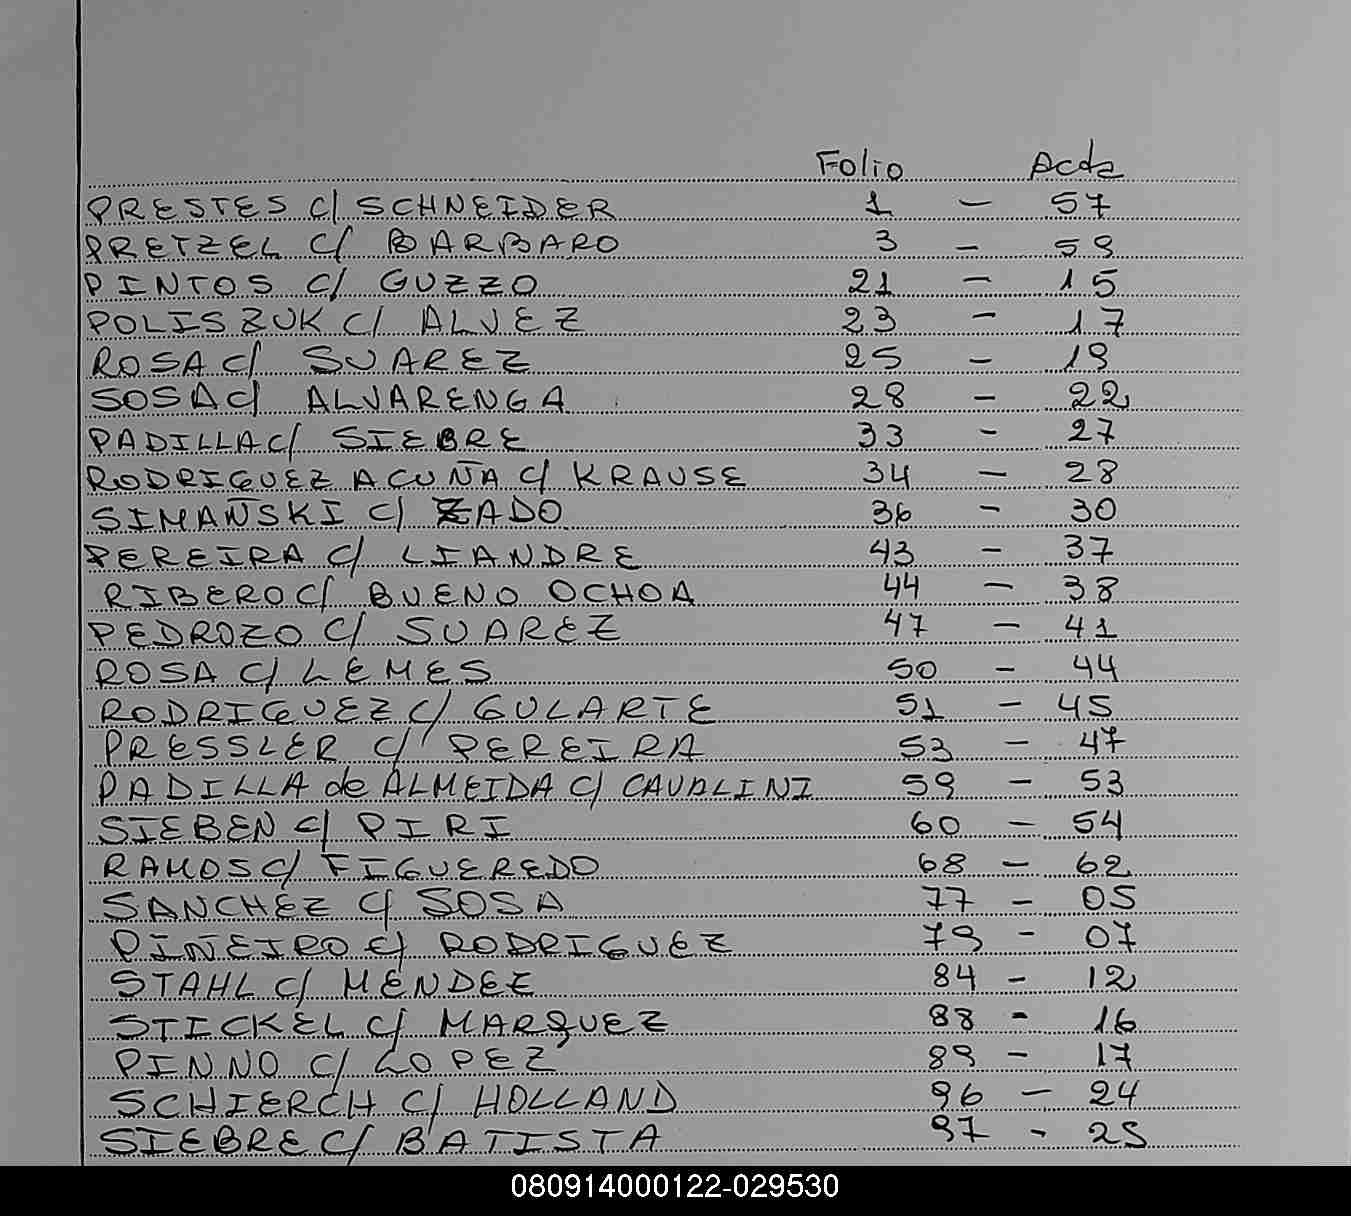 Folio Acta
PRESTES c/ SCHNEIDER 1 - 57
PRETZEL c/ BARBARO 3 - 59
PINTOS c/ GUZZO 21 - 15
POLISZUK c/ ALVEZ 23 - 17
ROSA c/ SUAREZ 25 - 19
SOSA c/ ALVARENGA 28 - 22
PADILLA c/ SIEBRE 33 - 27
RODRIGUEZ ACUÑA c/ KRAUSE 34 - 28
SIMAÑSKI c/ ZADO 36 - 30
PEREIRA c/ LIANDRE 43 - 37
RIBERO c/ BUENO OCHOA 44 - 38
PEDROZO c/ SUAREZ 47 - 41
ROSA c/ LEMES 50 - 44
RODRIGUEZ c/ GULARTE 51 - 45
PRESSLER c/ PEREIRA 53 - 47
PADILLA de ALMEIDA c/ CAVALINI 59 - 53
SIEBEN c/ PIRI 60 - 54
RAMOS c/ FIGUEREDO 68 - 62
SANCHEZ c/ SOSA 77 - 05
PIÑEIRO c/ RODRIGUEZ 79 - 07
STAHL c/ MENDEZ 84 - 12
STICKEL c/ MARQUEZ 88 - 16
PINNO c/ LOPEZ 89 - 17
SCHIERCH c/ HOLLAND 96 - 24
SIEBRE c/ BATISTA 97 - 25
080914000122-029530